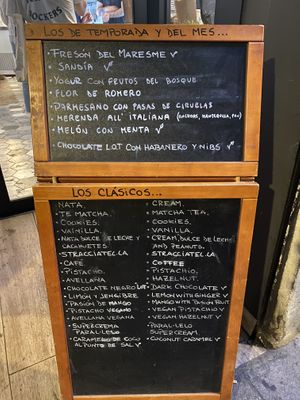 ROCKERS
LOS DE TEMPORADA Y DEL MES...
• FRESÓN DEL MARESME ✓
• SANDÍA ✓
• YOGUR CON FRUTOS DEL BOSQUE
• FLOR DE ROMERO
• PARMESANO CON PASAS DE CIRUELAS
• MERENDA ALL' ITALIANA
• MELÓN CON MENTA ✓
• CHOCOLATE LOT CON HABANERO Y NIBS ✓
LOS CLÁSICOS...
• NATA.
• TE MATCHA.
• COOKIES.
• VAINILLA.
• NATA, DULCE DE LECHE Y CACAHUETES.
• STRACCIATELLA
• CAFÉ
• PISTACHO.
• AVELLANA
• CHOCOLATE NEGRO LOT
• LIMÓN Y JENGIBRE
• PASIÓN DE MANGO
• PISTACHO VEGANO
• AVELLANA VEGANA
• SUPERCREMA PARAL·LELO
• CARAMELO DE COCO AL PUNTO DE SAL ✓
• CREAM.
• MATCHA TEA.
• COOKIES.
• VANILLA.
• CREAM, DULCE DE LECHE AND PEANUTS.
• STRACCIATELLA
• COFFEE
• PISTACHIO.
• HAZELNUT.
• DARK CHOCOLATE ✓
• LEMON WITH GINGER ✓
• MANGO WITH PASSION FRUIT
• VEGAN PISTACHIO ✓
• VEGAN HAZELNUT ✓
• PARAL·LELO SUPERCREAM.
• COCONUT CARAMEL ✓